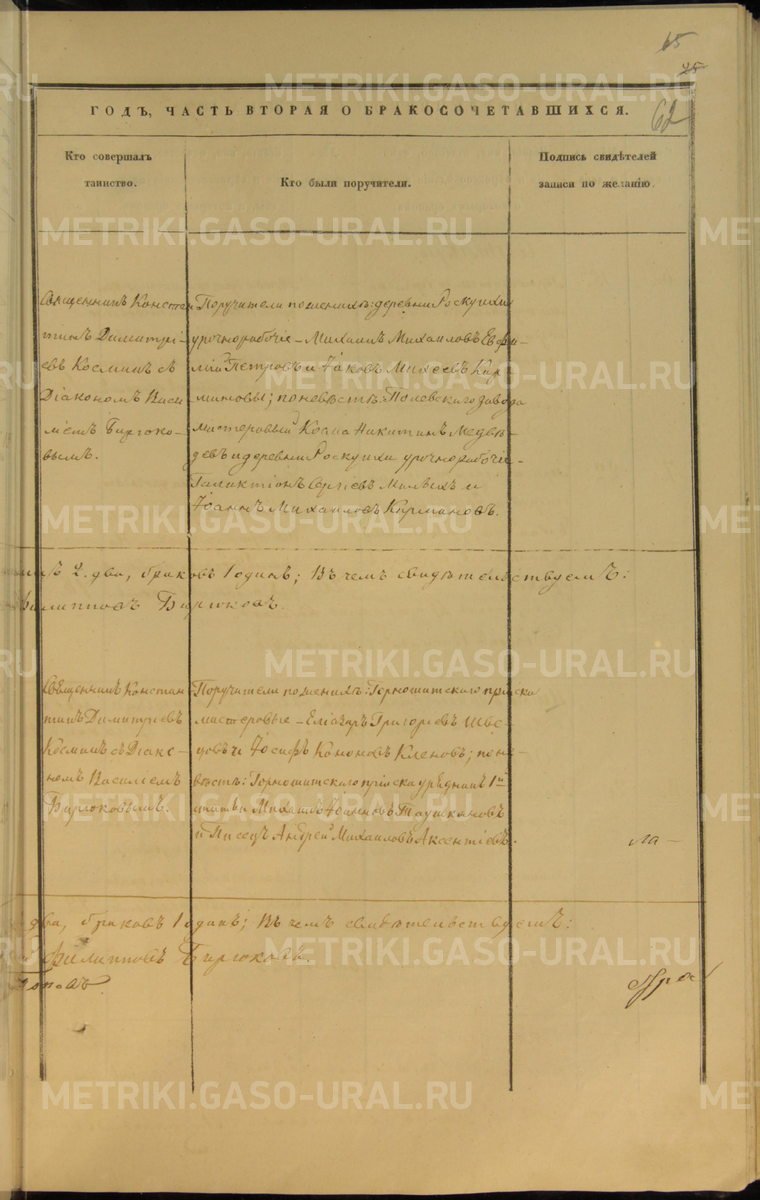 65
62
ГОДЪ, ЧАСТЬ ВТОРАЯ О БРАКОСОЧЕТАВШИХСЯ.
Кто совершалъ
таинство.
Кто были поручители.
Подпись свидѣтелей
записи по желанію.
Священникъ Констан
тинъ Димитрі-
евъ Косминъ съ
Діакономъ Васи
ліемъ Бирюко-
вымъ.
Поручители по женихѣ: деревни Роскуихи
урочнорабочіе - Михаилъ Михаиловъ Евфи-
мій Петровъ и Іаковъ Михеевъ Кир
мановы; по невѣстѣ: Полевскаго завода
мастеровый Козма Никитинъ Медвѣ-
девъ и деревни Роскуихи урочнорабочіе -
Галактіонъ Сергіевъ Малыхъ и
Іоаннъ Михаиловъ Кирмановъ.
2. два, браковъ 1 одинъ; Въ чемъ свидѣтельствуемъ:
Филипповъ Бирюковъ.
Священникъ Констан
тинъ Димитріевъ
Косминъ съ Діако-
номъ Василіемъ
Бирюковымъ.
Поручители по женихѣ: Горнощитскаго пріиска
мастеровые - Елеазаръ Григорьевъ Шве-
цовъ и Іосифъ Кононовъ Кленовъ; по не-
вѣстѣ: Горнощитскаго пріиска урядникъ 1й
статьи Михаилъ Іоанновъ Таушкановъ
и Писецъ Андрей Михаиловъ Аксентіевъ.
ла -
два, браковъ 1 одинъ; Въ чемъ свидѣтельствуемъ:
Филипповъ Бирюковъ.
Поповъ
METRIKI.GASO-URAL.RU